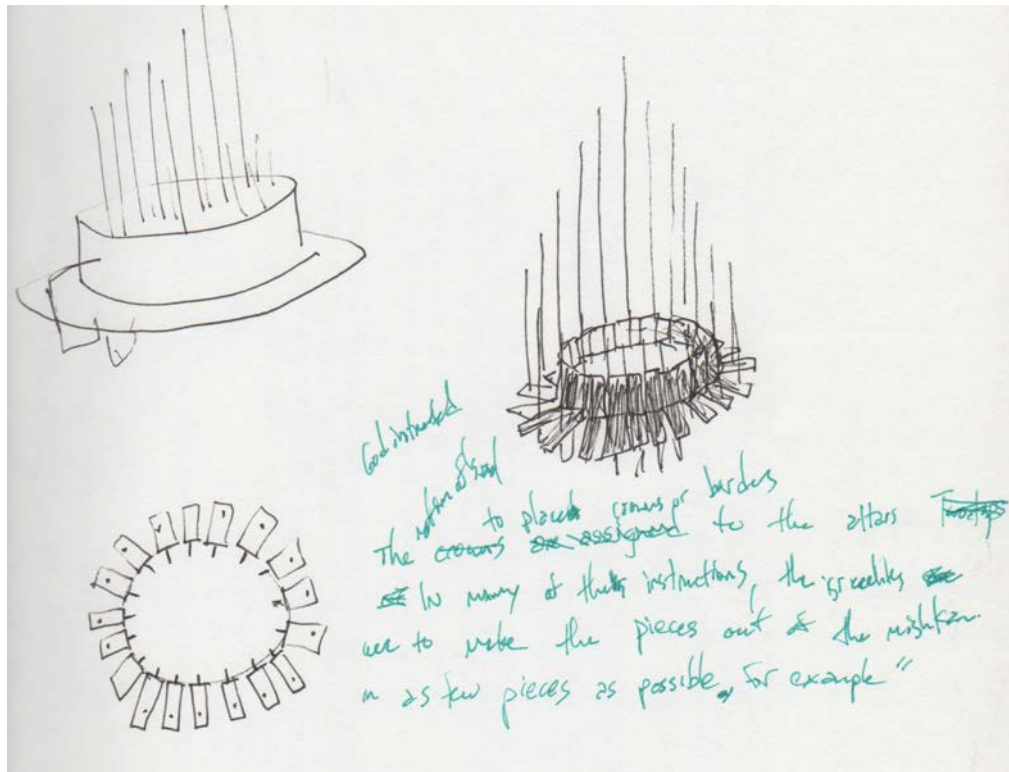 God instructed
notion of God
to place crowns or borders
The crowns are assigned to the altars
In many of the instructions, the israelites
are to make the pieces out of the mishkan
in as few pieces as possible, for example"